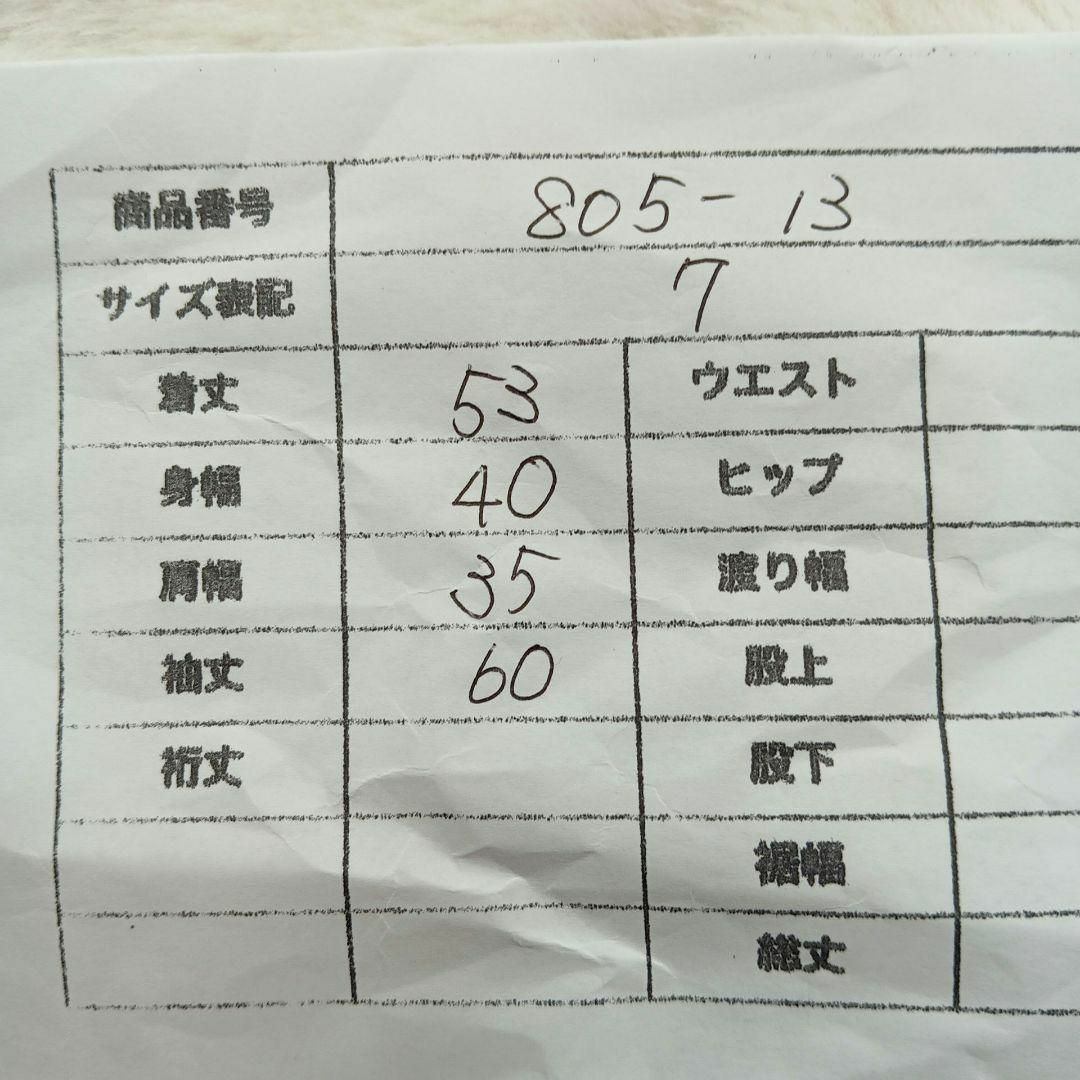 商品番号 805-13
サイズ表記 7
着丈 53 ウエスト
身幅 40 ヒップ
肩幅 35 渡り幅
袖丈 60 股上
裄丈 股下
裾幅
総丈